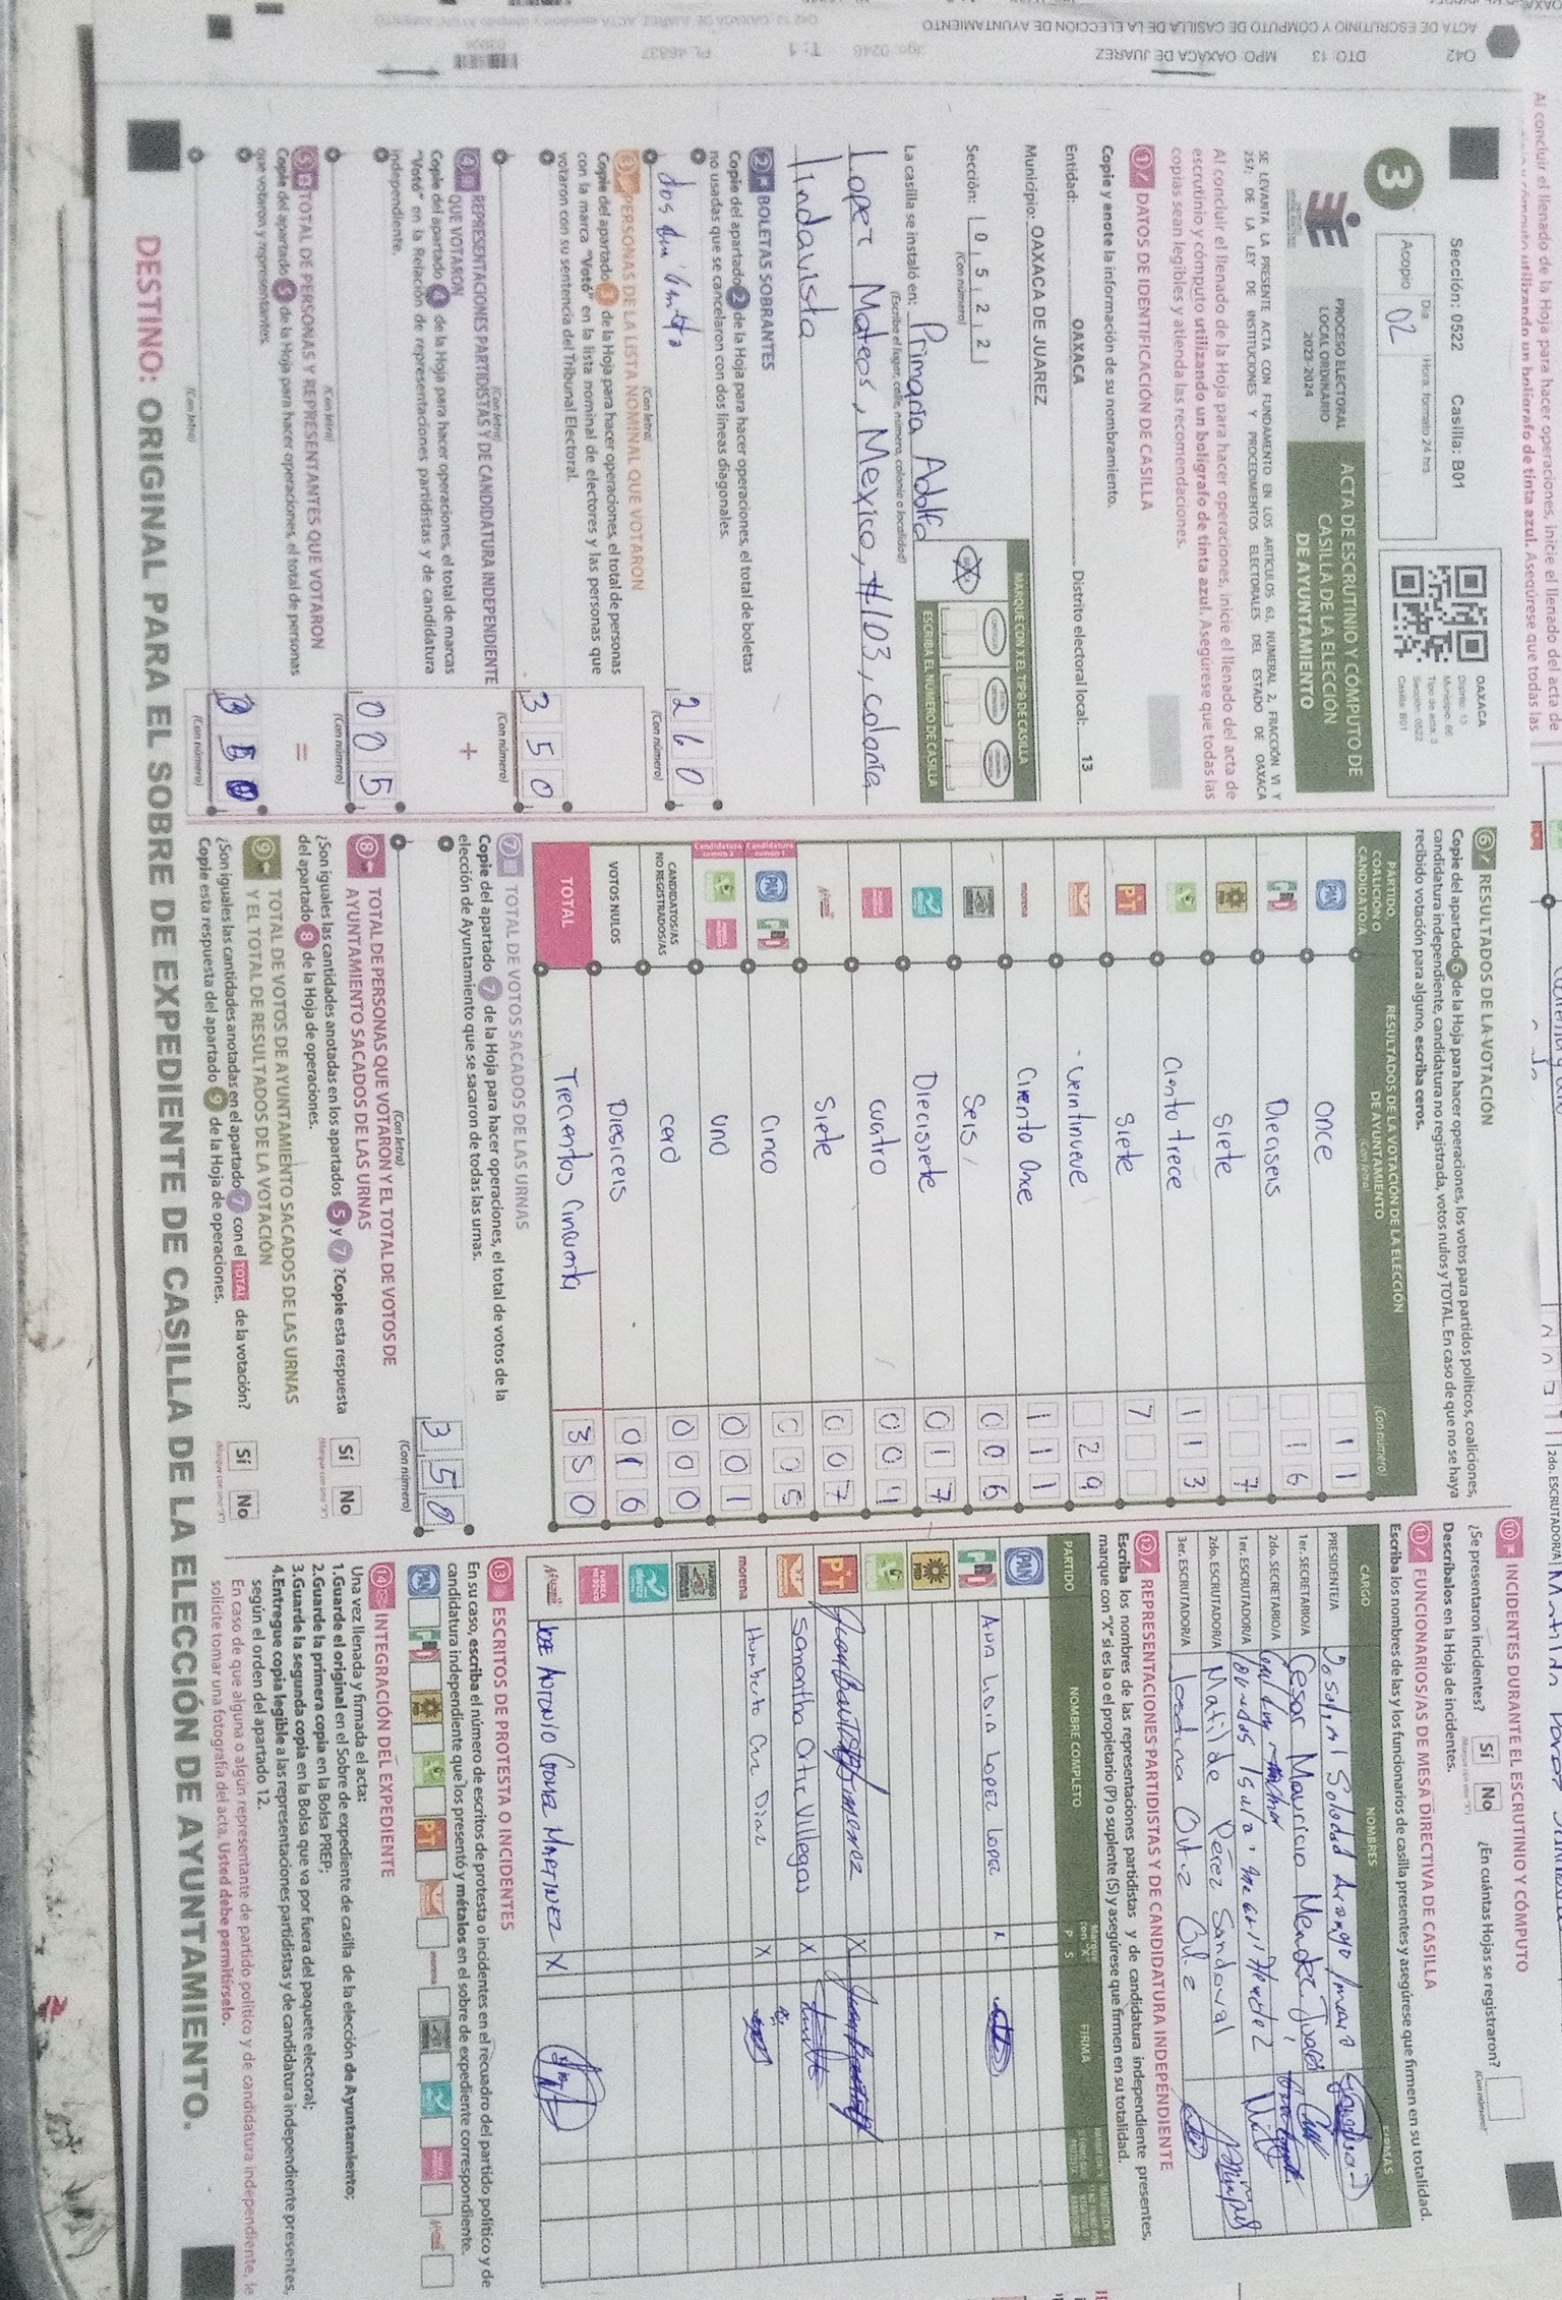 Al concluir el llenado de la Hoja para hacer operaciones, inicie el llenado del acta de
042 DTO: 13 MPO: OAXACA DE JUAREZ
ACTA DE ESCRUTINIO Y COMPUTO DE CASILLA DE LA ELECCION DE AYUNTAMIENTO
Sección: 0522 Casilla: B01
Acopio Día 02 Hora: formato 24 hrs
OAXACA
Distrito: 13
Municipio: 66
Tipo de acta: 3
Sección: 0522
Casilla: B01
3
PROCESO ELECTORAL
LOCAL ORDINARIO
2023-2024
ACTA DE ESCRUTINIO Y CÓMPUTO DE
CASILLA DE LA ELECCIÓN
DE AYUNTAMIENTO
SE LEVANTA LA PRESENTE ACTA CON FUNDAMENTO EN LOS ARTÍCULOS 63, NUMERAL 2, FRACCIÓN VI Y
257; DE LA LEY DE INSTITUCIONES Y PROCEDIMIENTOS ELECTORALES DEL ESTADO DE OAXACA
Al concluir el llenado de la Hoja para hacer operaciones, inicie el llenado del acta de
escrutinio y cómputo utilizando un bolígrafo de tinta azul. Asegúrese que todas las
copias sean legibles y atienda las recomendaciones.
1 DATOS DE IDENTIFICACIÓN DE CASILLA
Copie y anote la información de su nombramiento.
Entidad: OAXACA Distrito electoral local: 13
Municipio: OAXACA DE JUAREZ
MARQUE CON X EL TIPO DE CASILLA
Sección: 0 5 2 2
(Con número)
ESCRIBA EL NÚMERO DE CASILLA
La casilla se instaló en: Primaria Adolfo
(Escriba el lugar, calle, número, colonia o localidad)
Lopez Mateos, Mexico, #103, colonia
lindavista
2 BOLETAS SOBRANTES
Copie del apartado 2 de la Hoja para hacer operaciones, el total de boletas
no usadas que se cancelaron con dos líneas diagonales.
2 6 0
(Con letra) (Con número)
3 PERSONAS DE LA LISTA NOMINAL QUE VOTARON
Copie del apartado 3 de la Hoja para hacer operaciones, el total de personas
con la marca "Votó" en la lista nominal de electores y las personas que
votaron con su sentencia del Tribunal Electoral.
3 5 0
(Con letra) (Con número)
4 REPRESENTACIONES PARTIDISTAS Y DE CANDIDATURA INDEPENDIENTE
QUE VOTARON
Copie del apartado 4 de la Hoja para hacer operaciones, el total de marcas
"Votó" en la Relación de representaciones partidistas y de candidatura
independiente.
+
0 0 5
(Con letra) (Con número)
5 TOTAL DE PERSONAS Y REPRESENTANTES QUE VOTARON
Copie del apartado 5 de la Hoja para hacer operaciones, el total de personas
que votaron y representantes.
=
(Con letra) (Con número)
6 RESULTADOS DE LA VOTACIÓN
Copie del apartado 6 de la Hoja para hacer operaciones, los votos para partidos políticos, coaliciones,
candidatura independiente, candidatura no registrada, votos nulos y TOTAL. En caso de que no se haya
recibido votación para alguno, escriba ceros.
PARTIDO, COALICIÓN O CANDIDATO/A
RESULTADOS DE LA VOTACIÓN DE LA ELECCIÓN DE AYUNTAMIENTO
(Con letra) (Con número)
PAN once 1 1
PRI Dieciseis 1 6
PRD siete 7
ciento trece 1 1 3
PT siete 7
- veintinueve 2 9
morena Ciento Once 1 1 1
Seis 0 0 6
Diecisiete 0 1 7
cuatro 0 0 4
siete 0 0 7
Candidatura común 1 PAN PRI cinco 0 0 5
Candidatura común 2 uno 0 0 1
CANDIDATOS/AS NO REGISTRADOS/AS cero 0 0 0
VOTOS NULOS Diesiceis 0 1 6
TOTAL Trecientos Cincuenta 3 5 0
7 TOTAL DE VOTOS SACADOS DE LAS URNAS
Copie del apartado 7 de la Hoja para hacer operaciones, el total de votos de la
elección de Ayuntamiento que se sacaron de todas las urnas.
3 5 0
(Con letra) (Con número)
8 TOTAL DE PERSONAS QUE VOTARON Y EL TOTAL DE VOTOS DE
AYUNTAMIENTO SACADOS DE LAS URNAS
¿Son iguales las cantidades anotadas en los apartados 5 y 7? Copie esta respuesta
del apartado 8 de la Hoja de operaciones.
Sí No
9 TOTAL DE VOTOS DE AYUNTAMIENTO SACADOS DE LAS URNAS
Y EL TOTAL DE RESULTADOS DE LA VOTACIÓN
¿Son iguales las cantidades anotadas en el apartado 7 con el TOTAL de la votación?
Copie esta respuesta del apartado 9 de la Hoja de operaciones.
Sí No
10 INCIDENTES DURANTE EL ESCRUTINIO Y CÓMPUTO
¿Se presentaron incidentes? Sí No ¿En cuántas Hojas se registraron?
(Con número)
Descríbalos en la Hoja de incidentes.
11 FUNCIONARIOS/AS DE MESA DIRECTIVA DE CASILLA
Escriba los nombres de las y los funcionarios de casilla presentes y asegúrese que firmen en su totalidad.
CARGO NOMBRES FIRMAS
PRESIDENTE/A
1er. SECRETARIO/A Cesar Mauricio Mendez
2do. SECRETARIO/A
1er. ESCRUTADOR/A
2do. ESCRUTADOR/A Matilde Pérez Sandoval
3er. ESCRUTADOR/A
12 REPRESENTACIONES PARTIDISTAS Y DE CANDIDATURA INDEPENDIENTE
Escriba los nombres de las representaciones partidistas y de candidatura independiente presentes,
marque con "X" si es la o el propietario (P) o suplente (S) y asegúrese que firmen en su totalidad.
PARTIDO NOMBRE COMPLETO Marque con "X" P S FIRMA
PAN
PRI Ana Lopez Lopez x
PRD
PT Juan Bautista Jimenez X
Samantha Ortiz Villegas X
morena Humberto Diaz X
JOSE ANTONIO MARTINEZ X
13 ESCRITOS DE PROTESTA O INCIDENTES
En su caso, escriba el número de escritos de protesta o incidentes en el recuadro del partido político y de
candidatura independiente que los presentó y métalos en el sobre de expediente correspondiente.
14 INTEGRACIÓN DEL EXPEDIENTE
Una vez llenada y firmada el acta:
1.Guarde el original en el Sobre de expediente de casilla de la elección de Ayuntamiento;
2.Guarde la primera copia en la Bolsa PREP;
3.Guarde la segunda copia en la Bolsa que va por fuera del paquete electoral;
4.Entregue copia legible a las representaciones partidistas y de candidatura independiente presentes,
según el orden del apartado 12.
En caso de que alguna o algún representante de partido político y de candidatura independiente, le
solicite tomar una fotografía del acta. Usted debe permitírselo.
DESTINO: ORIGINAL PARA EL SOBRE DE EXPEDIENTE DE CASILLA DE LA ELECCIÓN DE AYUNTAMIENTO.